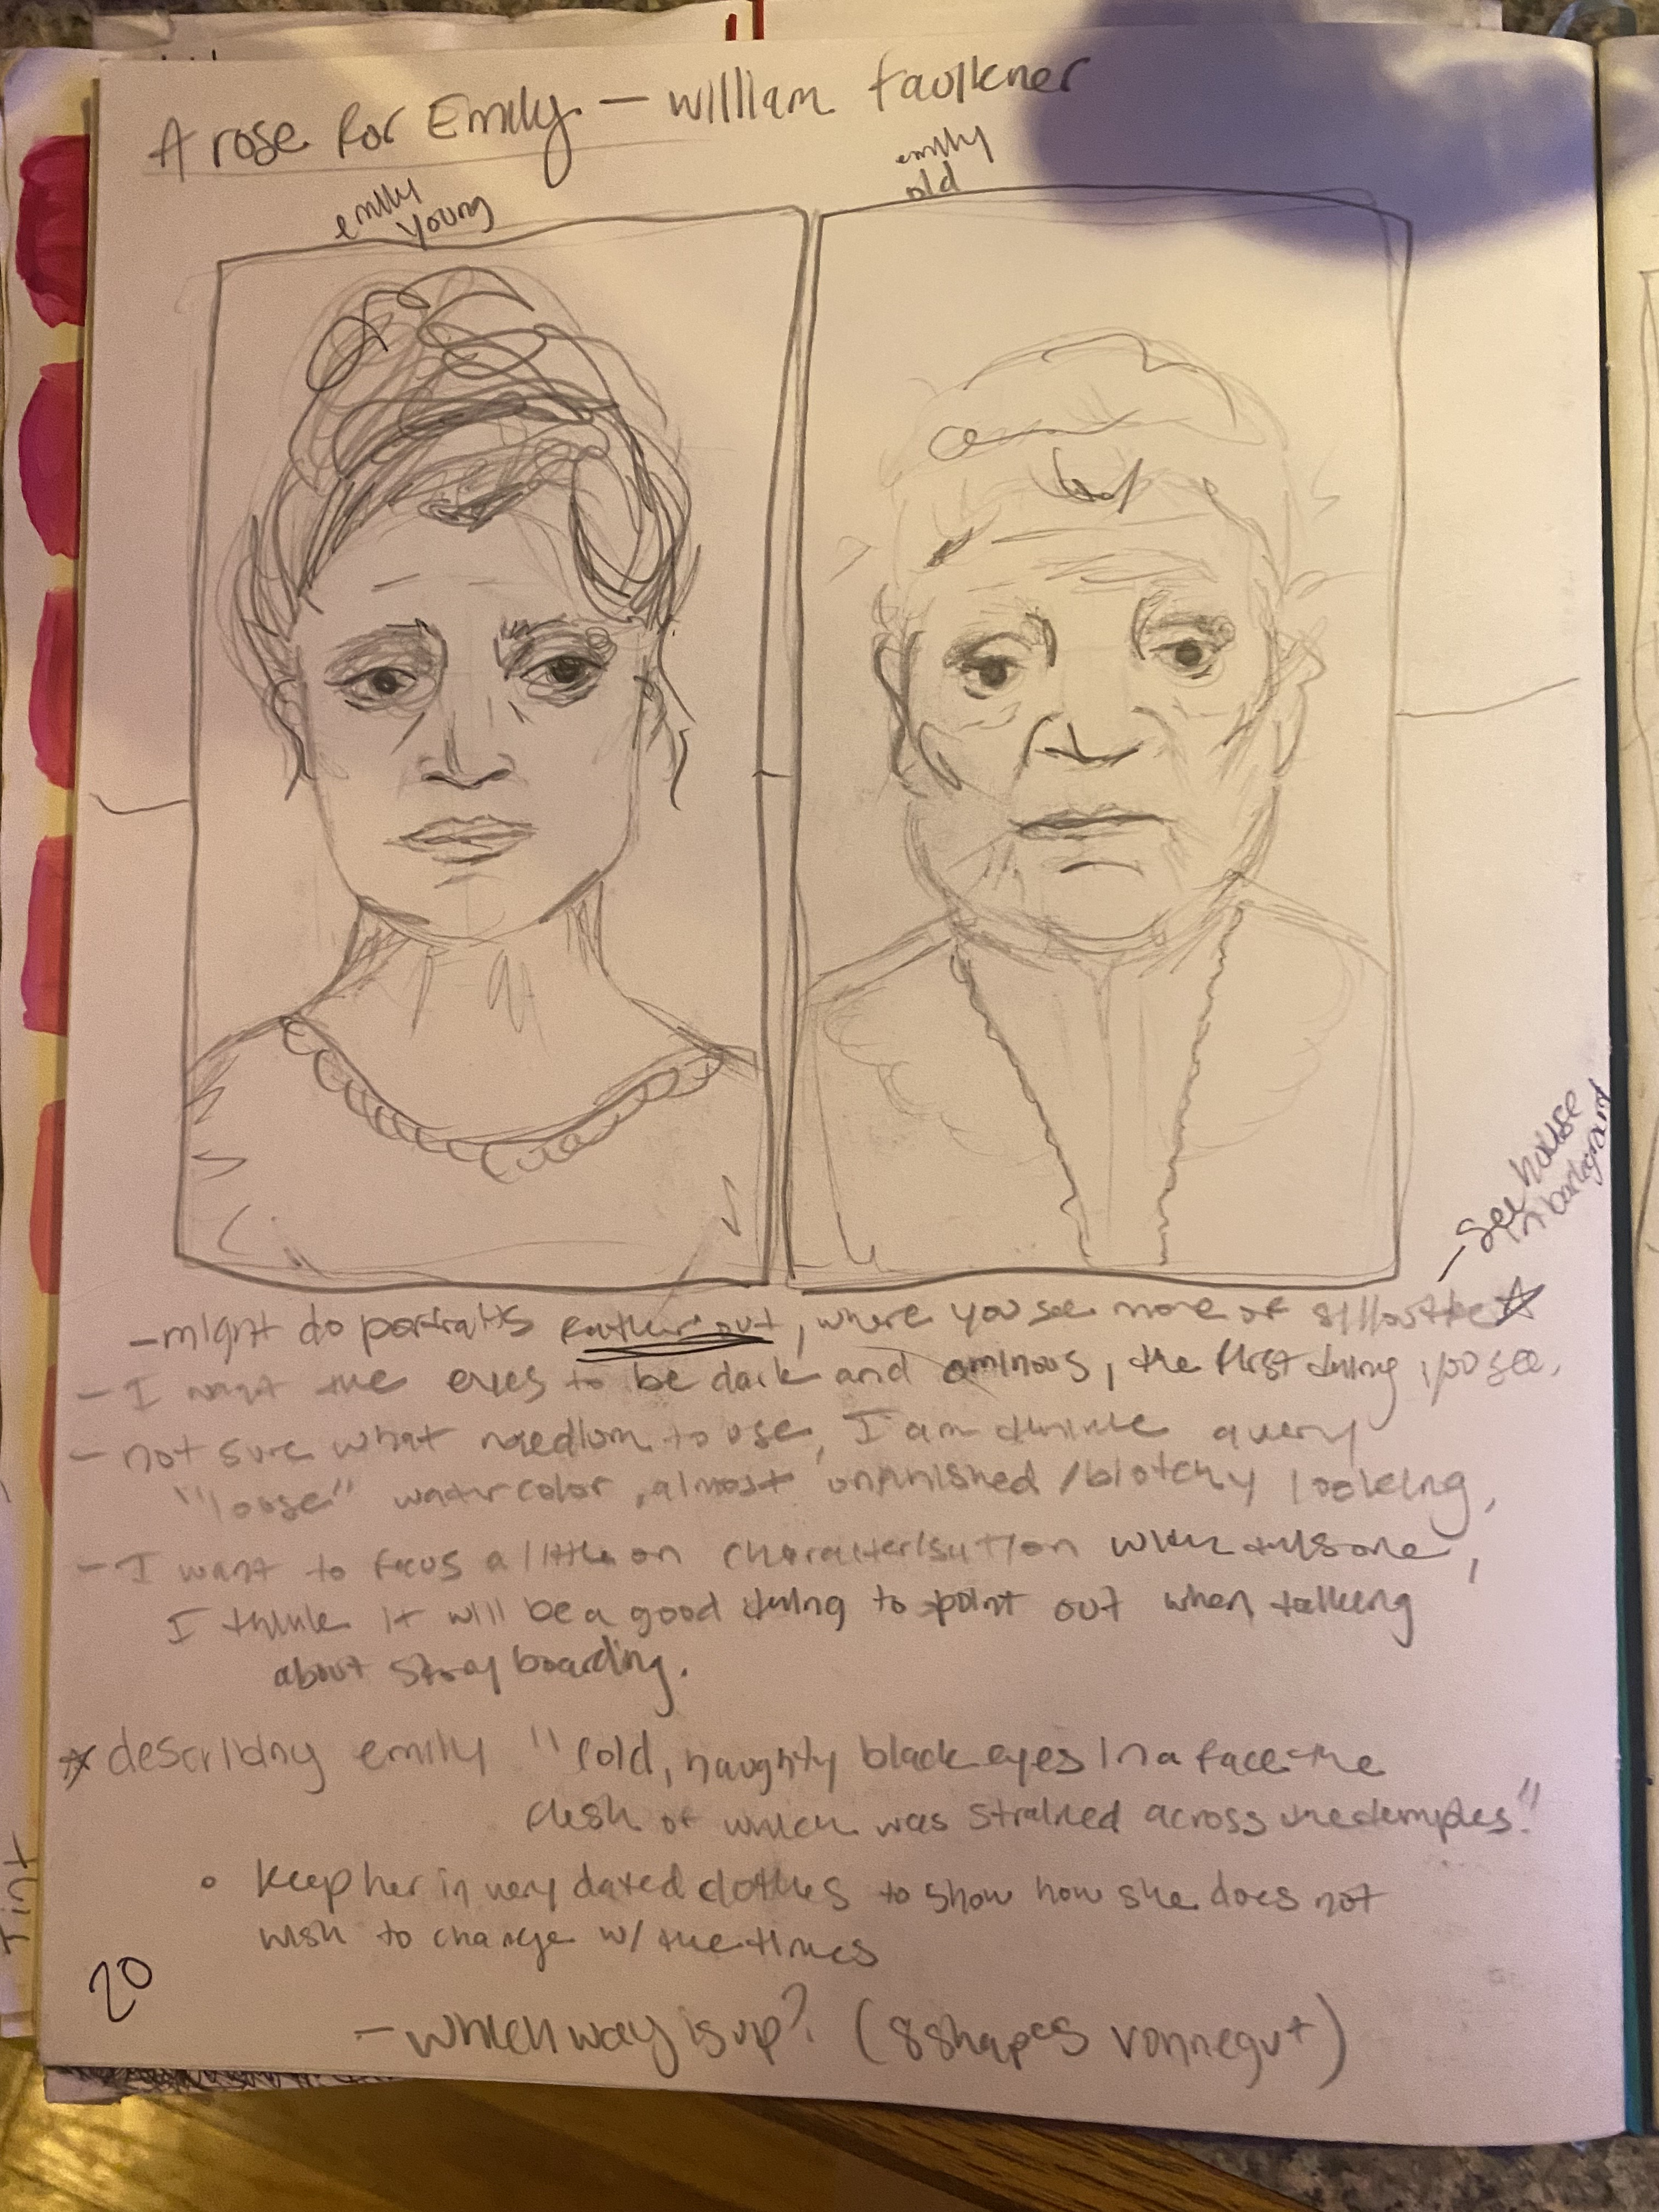 A rose for Emily - William Faulkner
emily
young
emily
old
- see house
in background
- might do portraits farther out, where you see more of sillouttke
- I want the eyes to be dark and ominous, the first thing you see.
- not sure what medium to use, I am think a very
"loose" watercolor, almost unfinished / blotchy looking,
- I want to focus a little on characterisution when this one,
I think it will be a good thing to point out when talking
about story boarding.
describing emily "cold, haughty black eyes in a face the
flesh of which was strained across the temples."
• Keep her in very dated clothes to show how she does not
wish to change w/ the times
20
- which way is up? (8 shapes vonnegut)
Tint